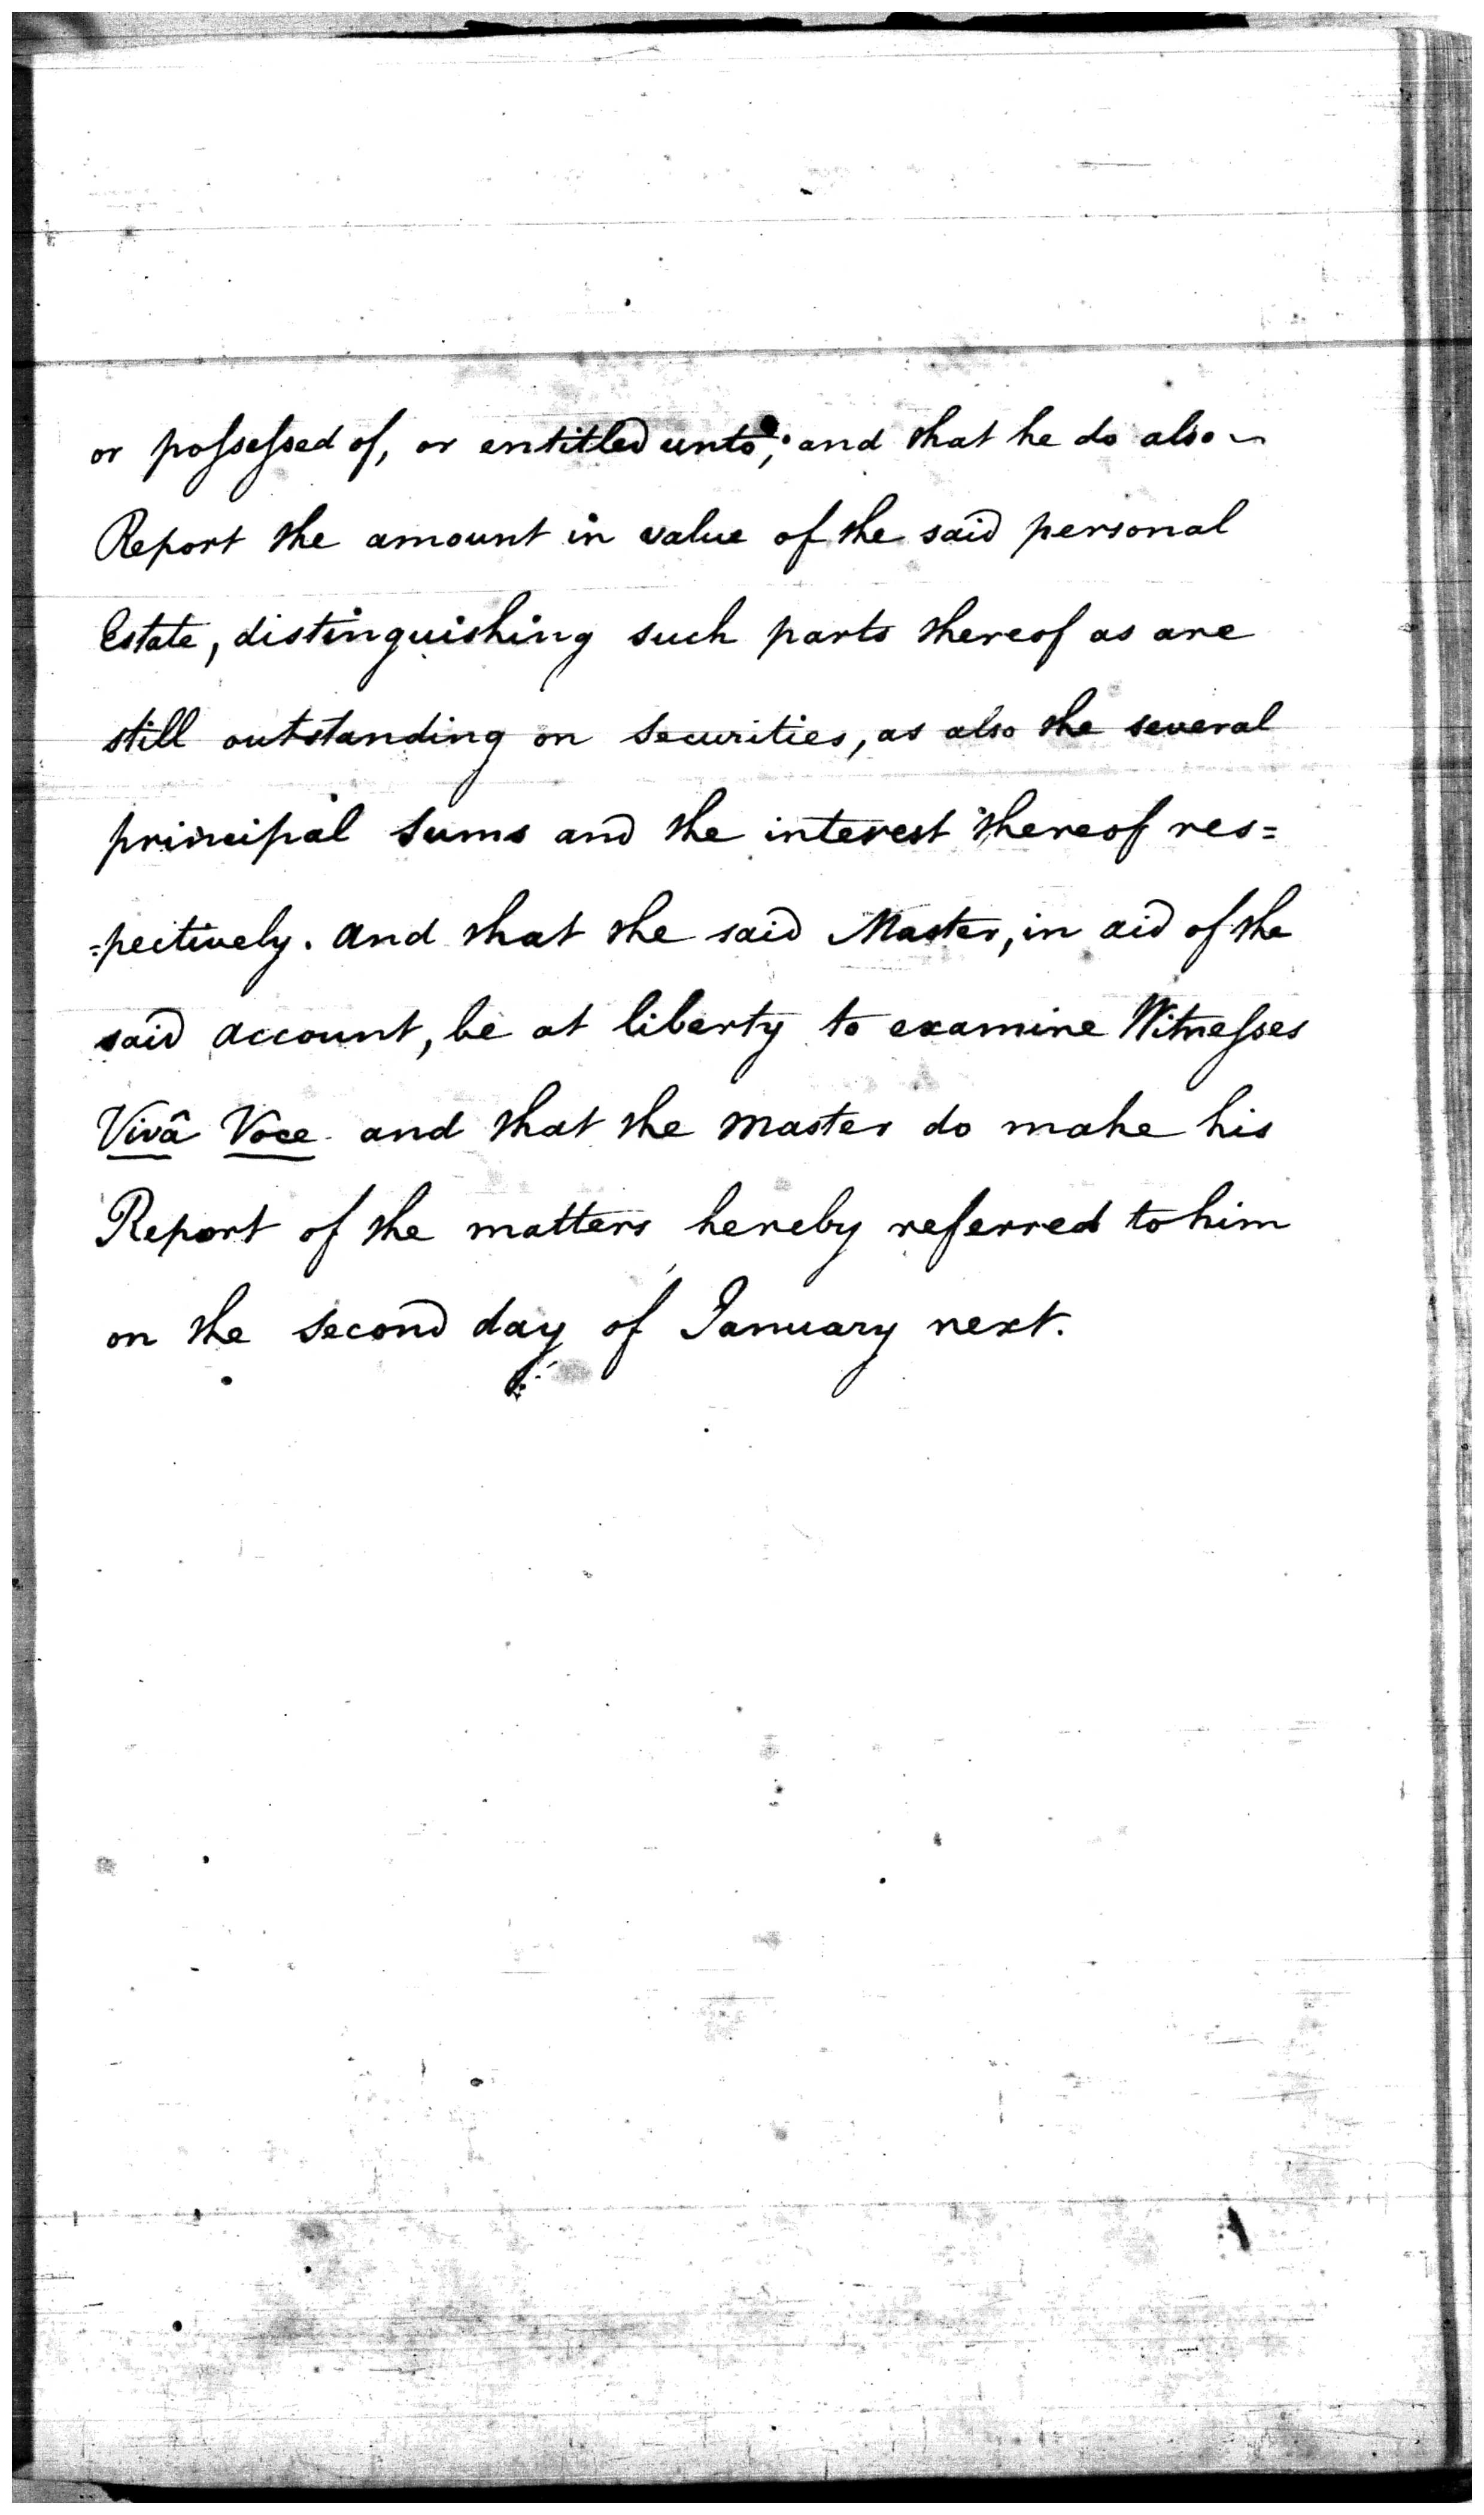 or poſseſsed of, or entitled unto; and that he do also
Report the amount in value of the said personal
Estate, distinguishing such parts thereof as are
still outstanding on Securities, as also the several
principal Sums and the interest thereof res=
=pectively. And that the said Master, in aid of the
said Account, be at liberty to examine Witneſses
Vivâ Voce and that the Master do make his
Report of the matters hereby referred to him
on the Second day of January next.